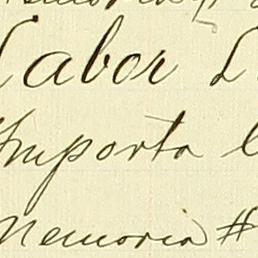 Labor
Importa
Memoria #